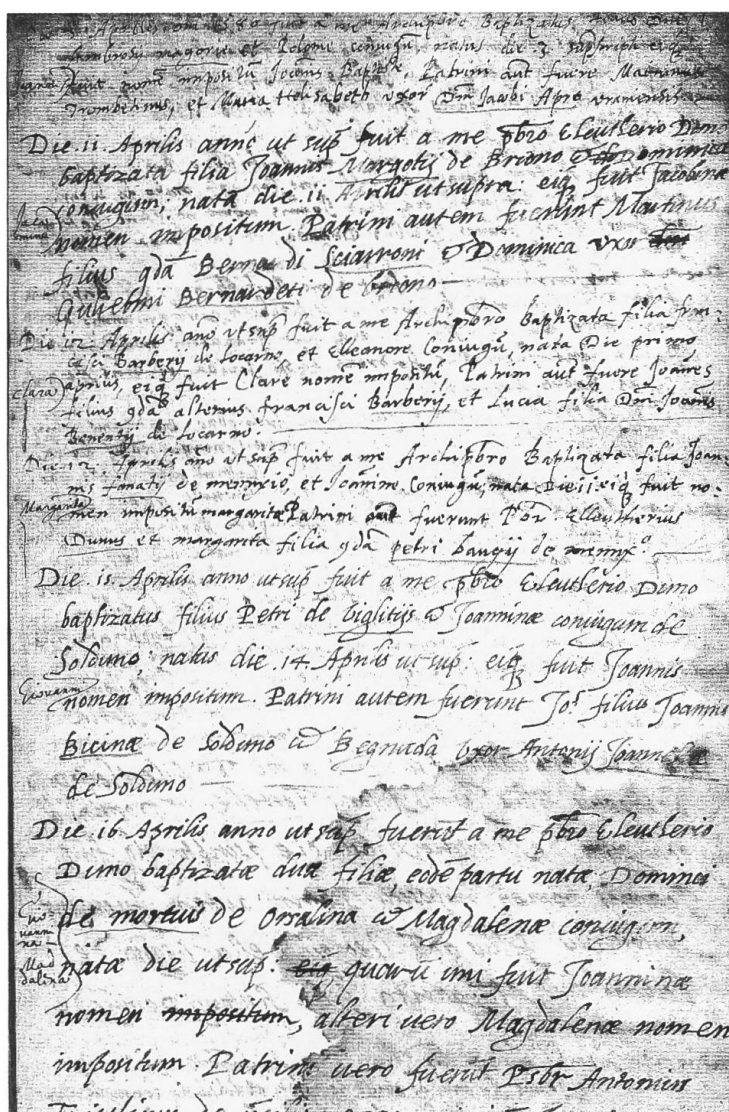 Aprilis fuit a me Archipbro Baptizatus
Ambrosij et coniugũ, natus die 3.
fuit nome impositũ Joanes Baptta, Patrini aut fuere
Trombetinus, et Maria Helisabeth uxor Dm Jacobi Apro
Die .11. Aprilis anno ut sup fuit a me pbro Eleutherio Duno
baptizata filia Joannis Margotij de Briono & Dominicæ
coniugum, nata die .11. Aprilis ut supra: eiq fuit Jacobinæ
nomen impositum. Patrini autem fuerunt Martinus
filius qda Bernardi Sciarroni & Dominica uxor
Gulielmi Bernardeti de briono
Die 12 Aprilis ano ut sup fuit a me Archipbro Baptizata filia fran-
cisci Barberij de locarno, et Elleanore Coniugũ, nata Die primo
Clara
aprilis, eiq fuit Clare nome impositũ, Patrini aut fuere Joanes
filius qda alterius francisci Barberij, et Lucia filia Dm Joanis
Benentij de locarno.
Die .12. Aprilis ano ut sup fuit a me Archipbro Baptizata filia Joan-
nis de , et Joanine Coniugũ, nata Die 11 eiq fuit no-
Margarita
men impositũ margaritæ Patrini aut fuerunt Pbr. Elleutherius
Dunus et margarita filia qda petri baugij de
Die .15. Aprilis anno ut sup fuit a me pbro Eleutherio Duno
baptizatus filius Petri de biglitijs & Joanninæ coniugum de
Solduno, natus die .14. Aprilis ut sup: eiq fuit Joannis
Giovanni
nomen impositum. Patrini autem fuerunt Jo.s filius Joannis
Bicinæ de Solduno & Begnuda uxor Antonij
de Solduno
Die .16. Aprilis anno ut sup fuerũt a me pbro Eleutherio
Duno baptizatæ duæ filiæ, eodẽ partu natæ, Dominici
de mortuis de Orselina & Magdalenæ coniugum,
Gio-
vanni
na
Mad
dalina
natæ die ut sup. eiq quarũ uni fuit Joanninæ
nomen impositum, alteri uero Magdalenæ nomen
impositum. Patrini uero fuerũt Psbr Antonius